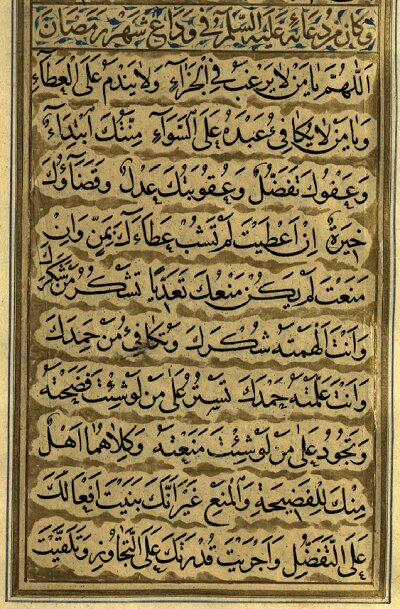 وكان من دعائه عليه السلام في وداع شهر رمضان
اللهم يا من لا يرغب في الجزاء ولا يندم على العطاء
ويا من لا يكافئ عبده على السواء منتك ابتداء
وعفوك تفضل وعقوبتك عدل وقضاؤك
خيرة ان اعطيت لم تشب عطاءك بمن وان
منعت لم يكن منعك تعديا تشكر من شكرك
وانت الهمته شكرك وتكافئ من حمدك
وانت علمته حمدك تستر على من لو شئت فضحته
وتجود على من لو شئت منعته وكلاهما اهل
منك للفضيحة والمنع غير انك بنيت افعالك
على التفضل واجريت قدرتك على التجاوز وتلقيت